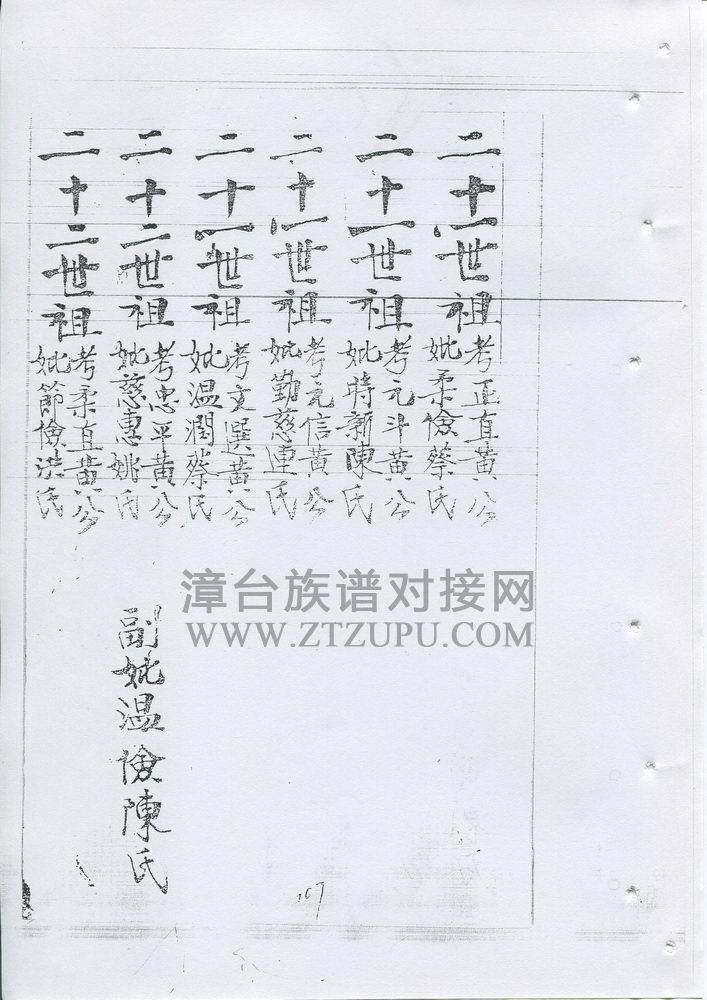 二十一世祖
考正直黄公
妣柔儉蔡氏
二十一世祖
考元斗黄公
妣時新陳氏
二十一世祖
考元信黄公
妣勤慈連氏
二十一世祖
考文選黄公
妣温潤蔡氏
二十二世祖
考忠平黄公
妣慈惠姚氏
副妣温儉陳氏
二十二世祖
考柔直黄公
妣節儉洪氏
漳台族谱对接网
WWW.ZTZUPU.COM
167